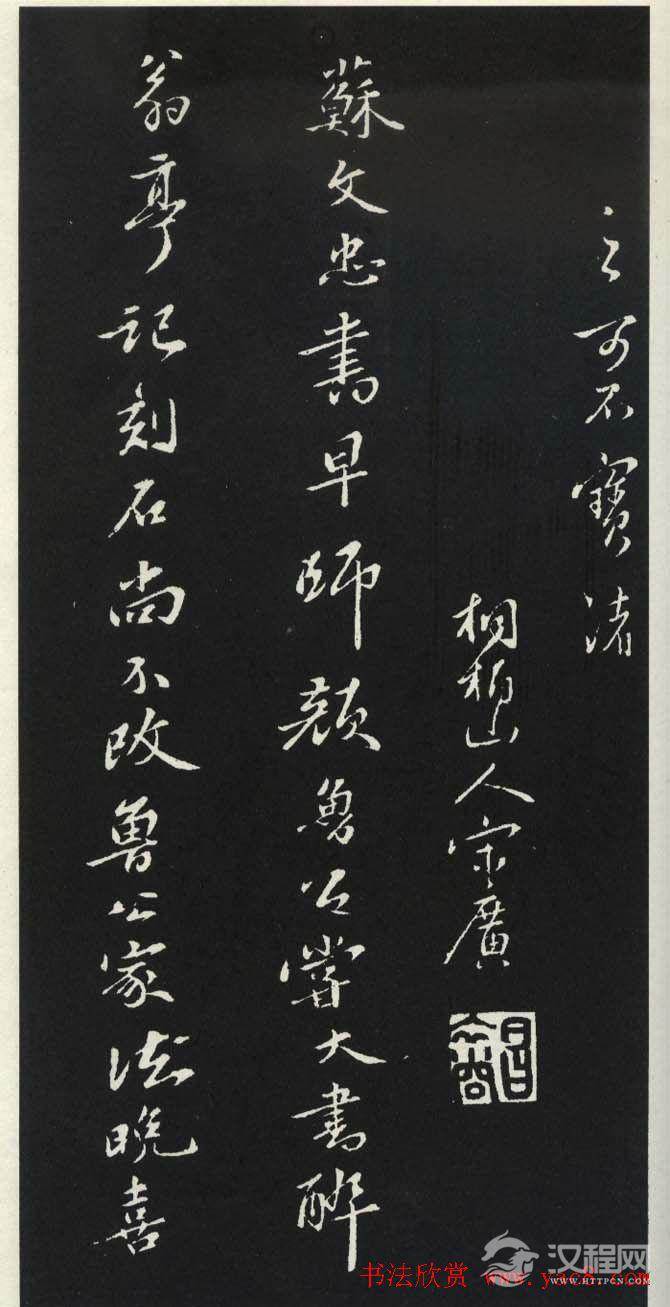 之可不寶諸
桐柏山人宋廣
昌裔
蘇文忠書早師顏魯公嘗大書醉
翁亭記刻石尚不改魯公家法晚喜
汉程网
书法欣赏
WWW.HTTPCN.COM